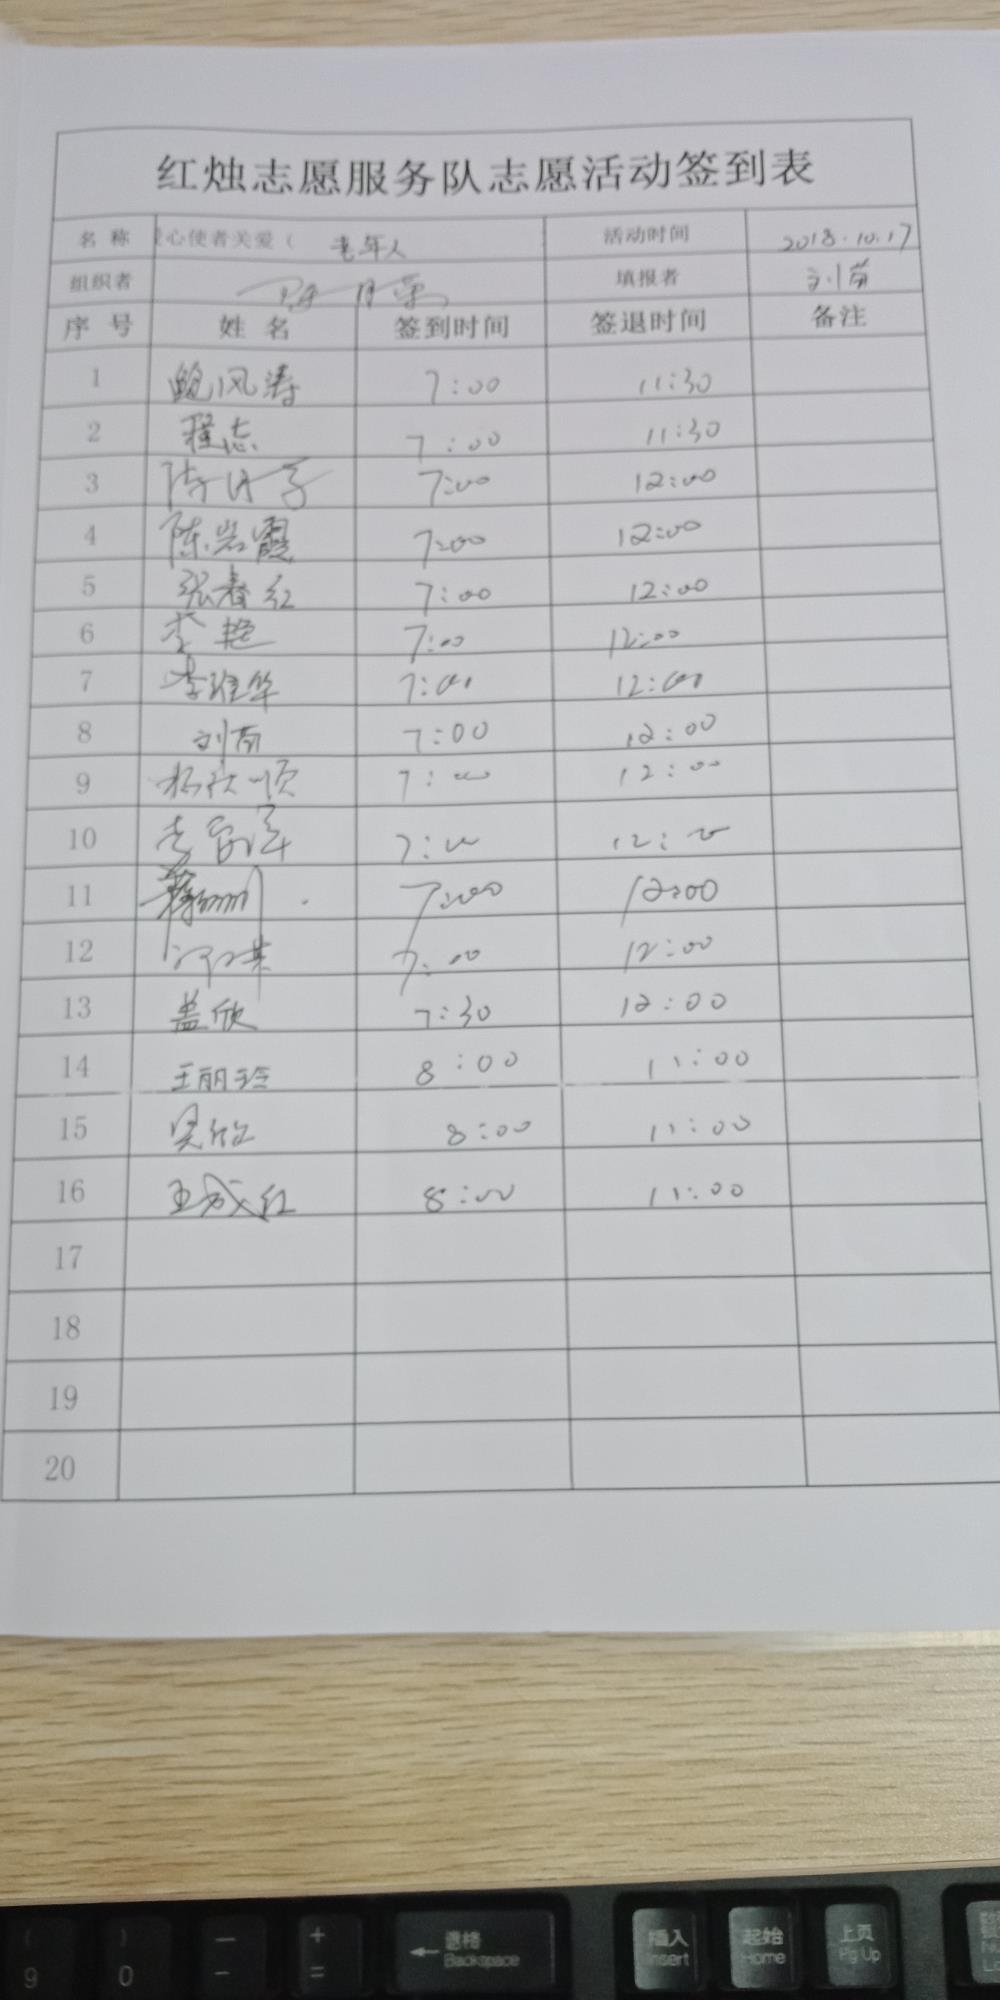 红烛志愿服务队志愿活动签到表
名 称 心使者关爱（ 老年人 活动时间 2018.10.17
组织者 填报者
序 号 姓 名 签到时间 签退时间 备注
1 鲍风涛 7:00 11:30
2 程志 7:00 11:30
3 7:00 12:00
4 陈岩霞 7:00 12:00
5 张春红 7:00 12:00
6 李艳 7:00 12:00
7 7:00 12:00
8 7:00 12:00
9 7:00 12:00
10 7:00 12:00
11 7:00 12:00
12 7:00 12:00
13 盖欣 7:30 12:00
14 王丽玲 8:00 11:00
15 8:00 11:00
16 王成红 8:00 11:00
17
18
19
20
( ) — + 退格 插入 起始 上页
9 0 - = Backspace Insert Home Pg Up